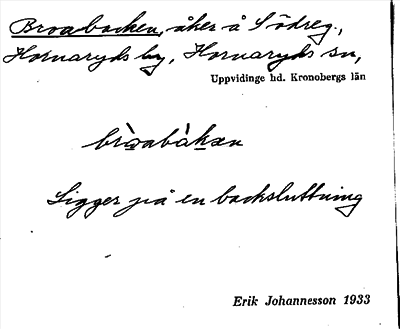 Broabacken, åker å Södreg.,
Hornaryds by, Hornaryds sn,
Uppvidinge hd. Kronobergs län
bròabàkan
Ligger på en backsluttning
Erik Johannesson 1933